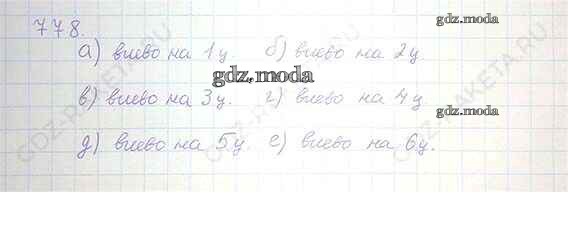 778.
а) влево на 1ц. б) влево на 2ц
в) влево на 3ц. г) влево на 4ц
д) влево на 5ц. е) влево на 6ц.
gdz.moda
gdz.moda
gdz.moda
GDZ-RAKETA.RU
GDZ-RAKETA.RU